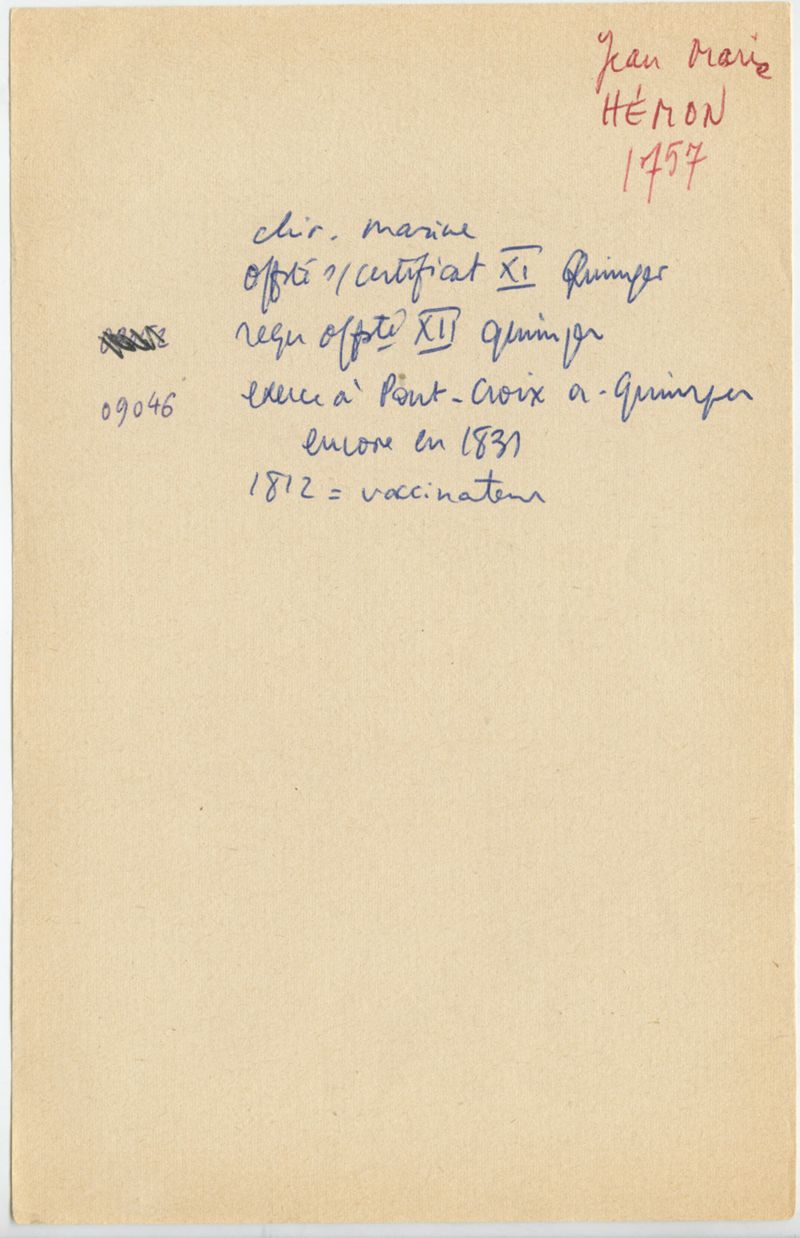 Jean Marie
HÉMON
1757
chir. marine
offté s/certificat XI Quimper
reçu offté XII Quimper
09046
exerce à Pont-Croix a-Quimper
encore en 1831
1812 = vaccinateur